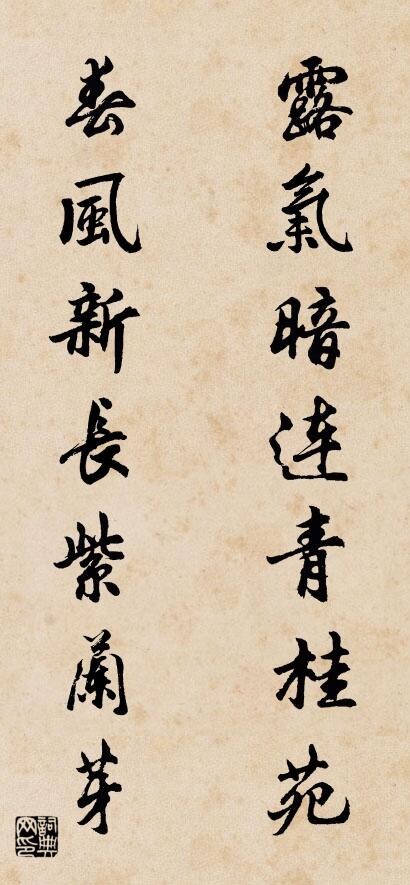 露氣暗連青桂苑
春風新長紫蘭芽
詞典網印